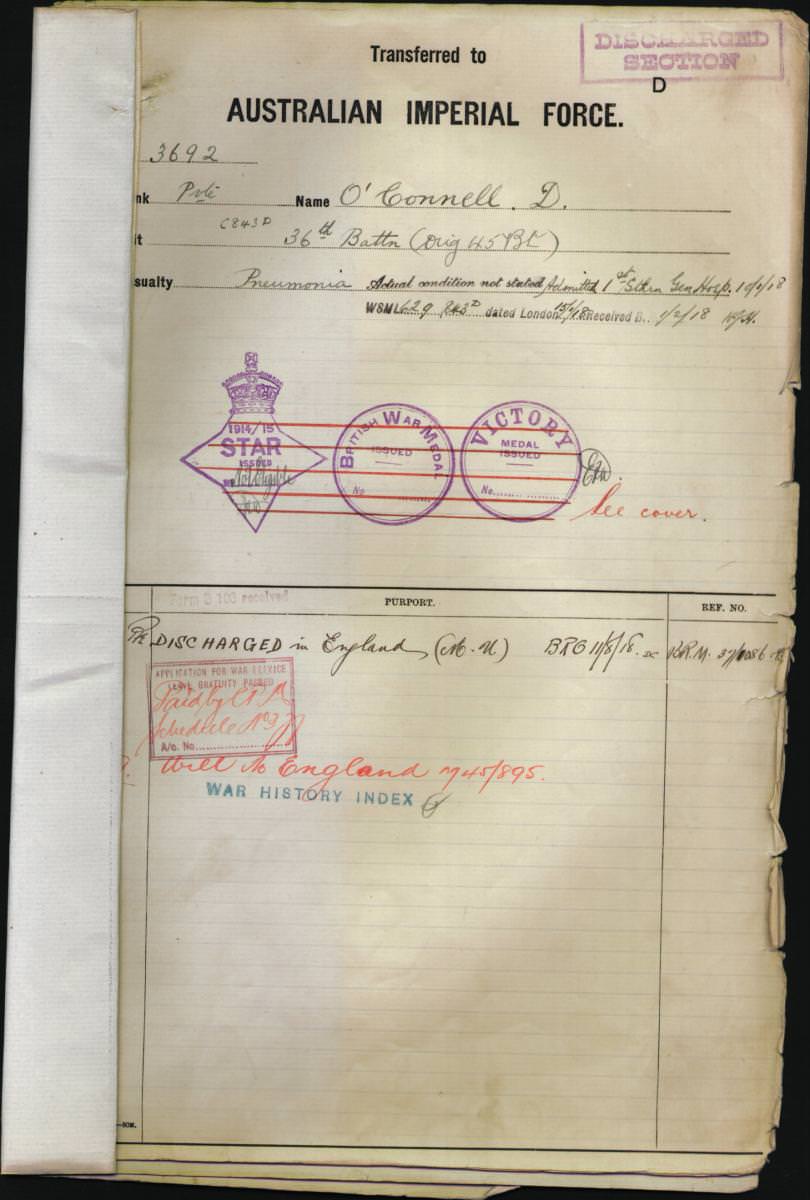 Transferred to
DISCHARGED
SECTION
D
AUSTRALIAN IMPERIAL FORCE.
3692
nk Pvte Name O'Connell. D.
C843D
it 36th Battn (Orig 45 Bt)
sualty Pneumonia Actual condition not stated Admitted 1st Sthrn Gen Hosp. 10/1/18
WSML 629 843D dated London 15/1/18 Received B.. 1/2/18
1914/15
STAR
ISSUED
Not Eligible
BRITISH WAR MEDAL
ISSUED
No
VICTORY
MEDAL
ISSUED
No.
See cover.
Form B 103 received
PURPORT.
REF. NO.
DISCHARGED in England (M.U) BRG 11/8/18. K.R.M. 37/
APPLICATION FOR WAR SERVICE
LEAVE GRATUITY PASSED
Paid by
Schedule No 37
A/c. No.
Will in England M45/895.
WAR HISTORY INDEX
—50M.